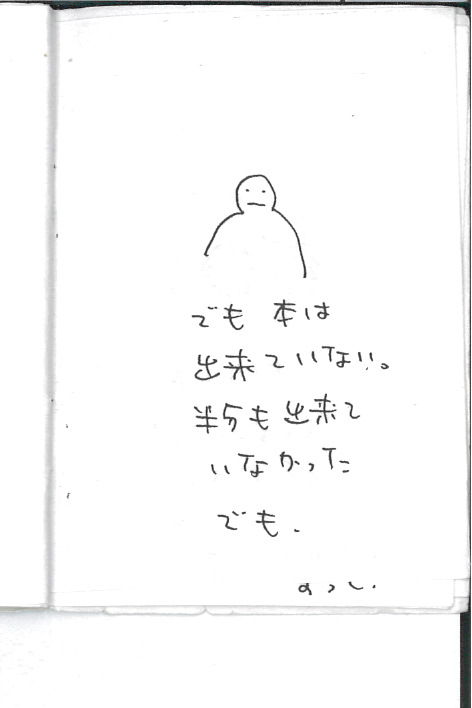 でも 本は
出来ていない。
半分も出来て
いなかった
でも.